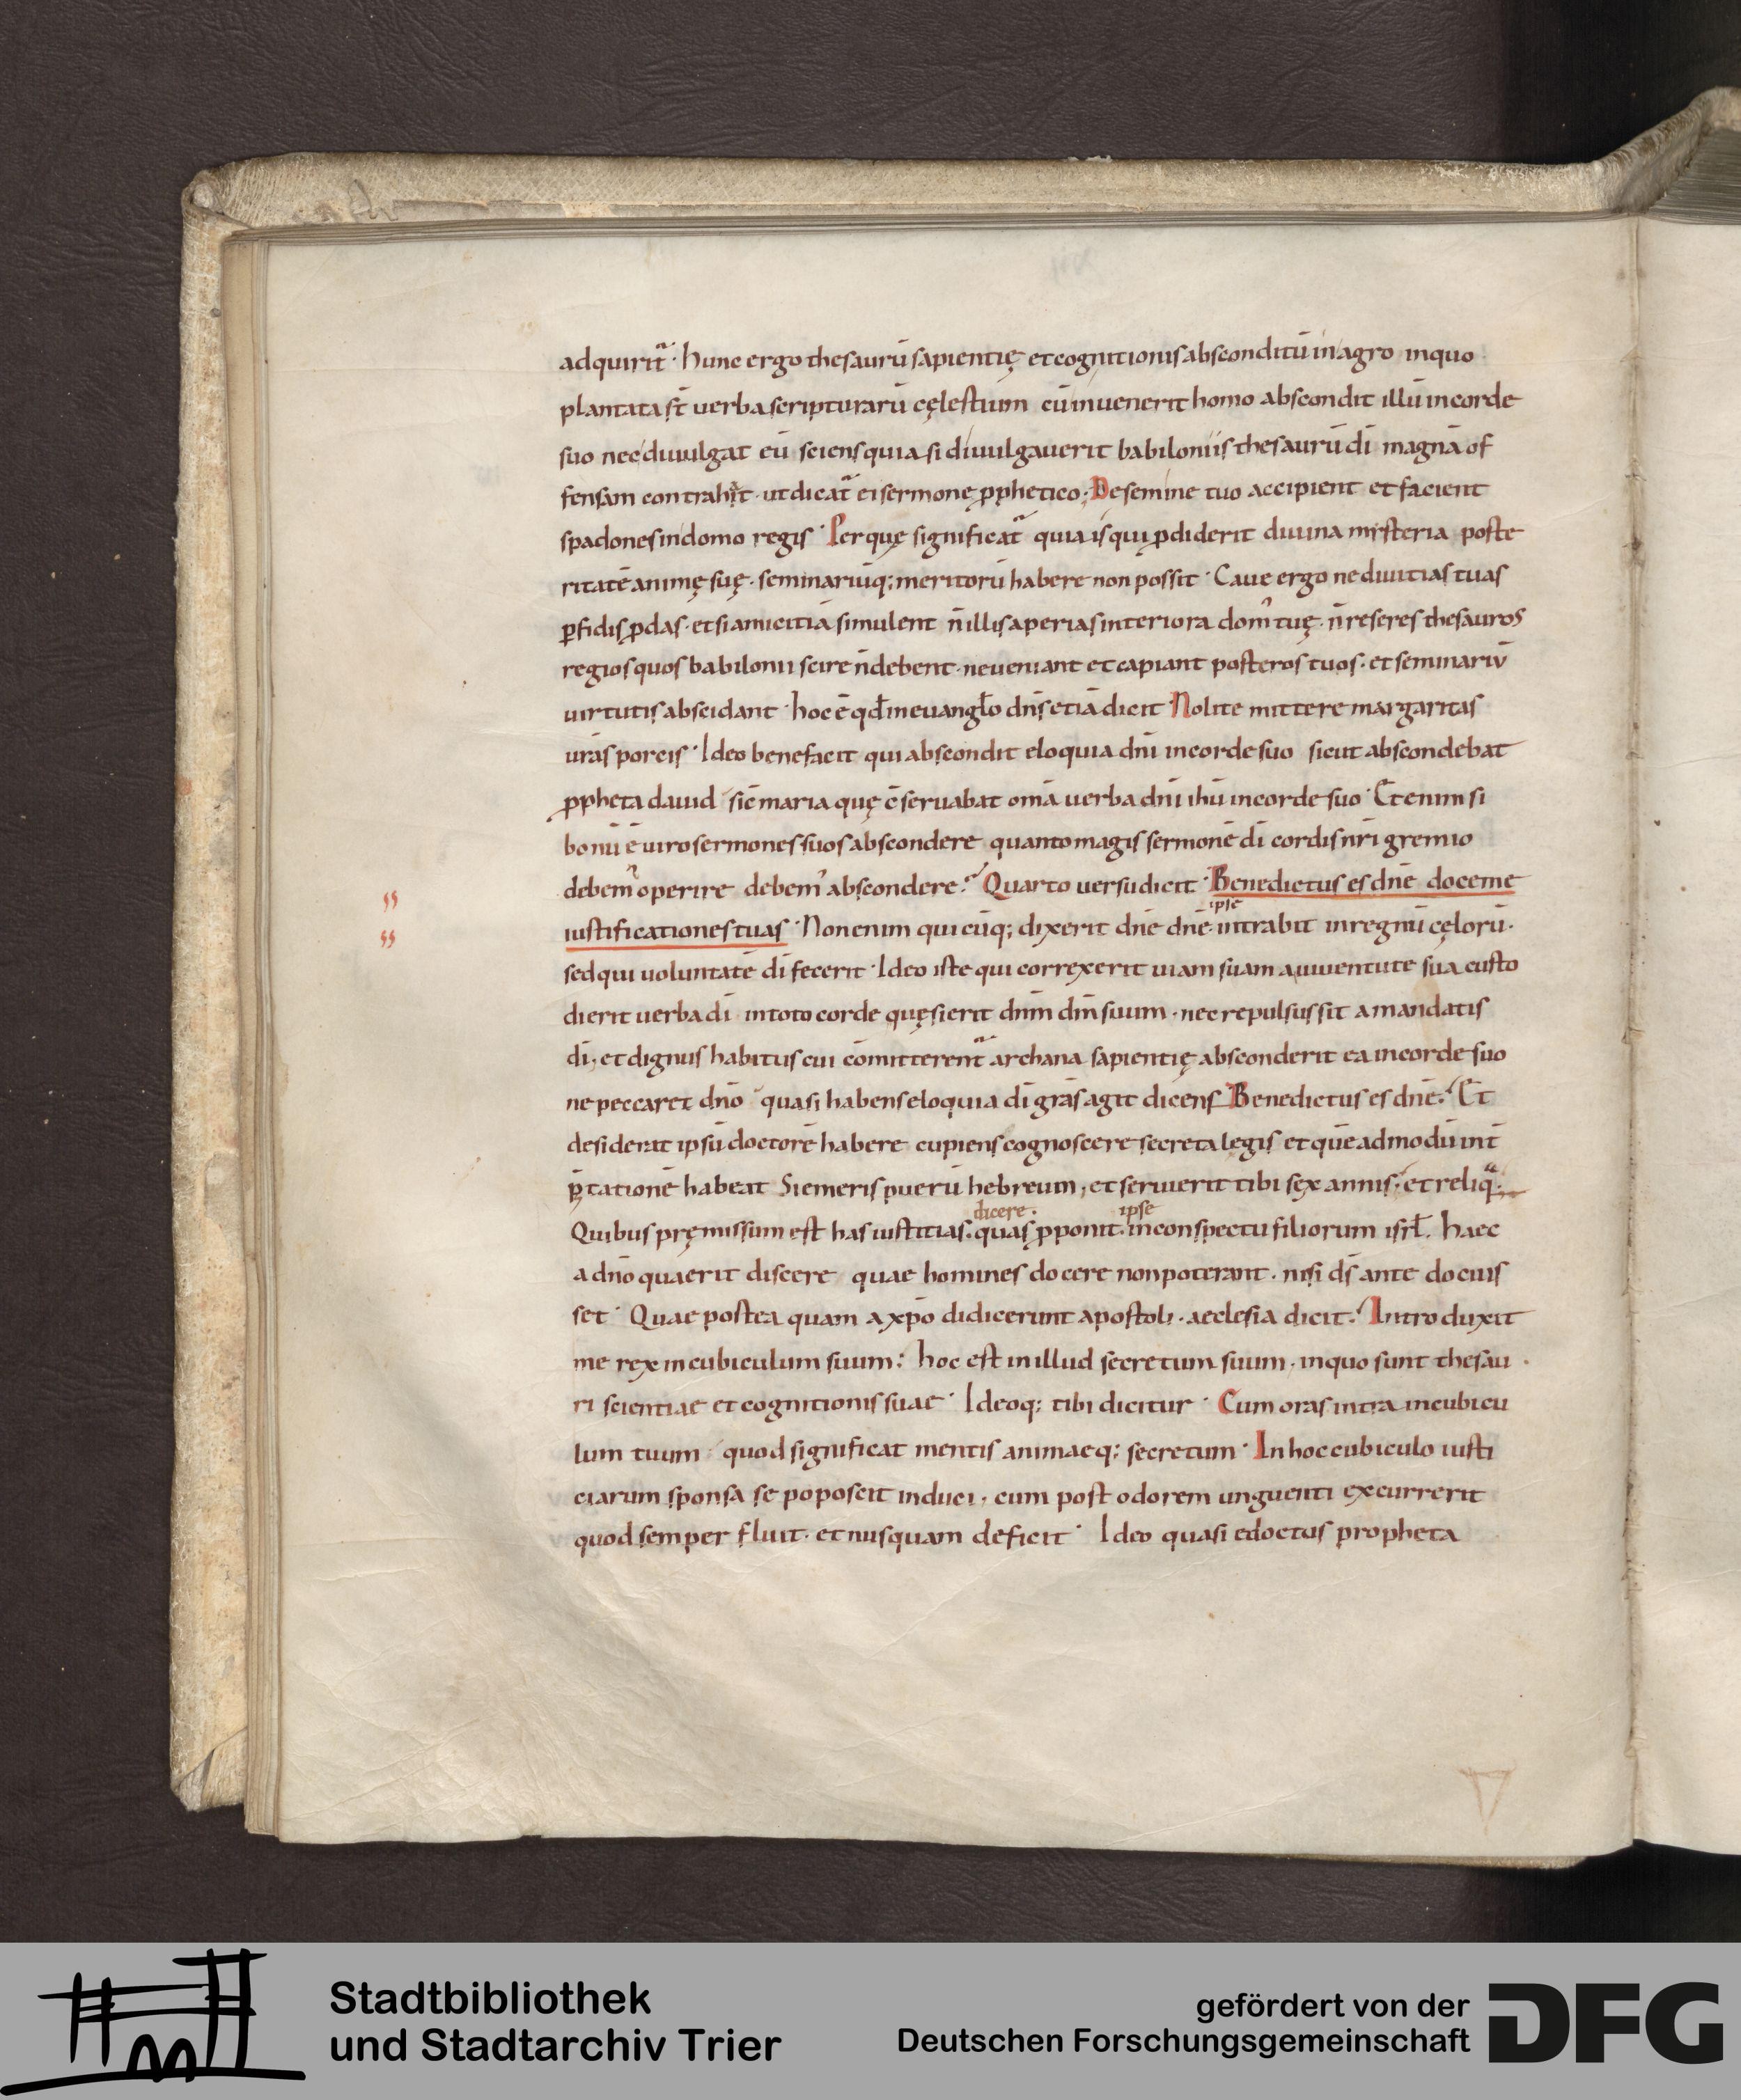 adquirit̄ᷓ · hunc ergo thesaurū sapientię et cognitionis absconditū in agro in quo
plantata st̄ uerba scripturarū cęlestium cū inuenerit homo abscondit illū in corde
suo nec diuulgat eū sciens quia si diuulgauerit babiloniis thesaurū dī magnā of
fensam contrahit · ut dicat̄ᷓ ei sermone ꝓphetico · De semine tuo accipient et facient
spadones in domo regis · Per quę significat̄ᷓ quia is qui ꝓdiderit diuina misteria poste
ritatē animę suę · seminariūq; meritorū habere non possit · Caue ergo ne diuitias tuas
ꝑfidis ꝓdas · et si amicitiā simulent n̄ illis aperias interiora dom᾽ tuę · n̄ reseres thesauros
regios quos babilonii scire n̄ debent · ne ueniant et capiant posteros tuos · et seminariū
uirtutis abscidant · hoc ē qd̄ in euangl̄o dn̄s etiā dicit Nolite mittere margaritas
urās porcis · Ideo benefacit qui abscondit eloquia dn̄i in corde suo sicut abscondebat
ꝓpheta dauid sic maria quę c̄seruabat om̄a uerba dn̄i ihū in corde suo · Et enim si
bonū ē uiro sermones suos abscondere quanto magis sermonē dī cordis nr̄i gremio
debem᾽ operire debem᾽ abscondere · Quarto uersu dicit · Benedictus es dn̄e doce me
iustificationes tuas · Non enim quicūq; dixerit dn̄e dn̄e · intrabit in regnū cęlorū ·
ipse
sed qui uoluntatē dī fecerit · Ideo iste qui correxerit uiam suam a iuuentute sua custo
dierit uerba dī in toto corde quęsierit dn̄m dm̄ suum · nec repulsus sit a mandatis
dī, et dignus habitus cui cōmitterent̄ᷓ archana sapientię absconderit ea in corde suo
ne peccaret dn̄o quasi habens eloquia dī grās agit dicens Benedictus es dn̄e · Et
desiderat ipsū doctorē habere cupiens cognoscere secreta legis et quēadmodū int̄
p̄tationē habeat Si emeris puerū hebreum, et seruierit tibi sex annis · et reliqᷓ ·
dicere · ipse
Quibus pręmissum est has iustitias · quas ꝓponit · in conspectu filiorum isrl̄ · haec
a dn̄o quaerit discere quae homines docere non poterant · nisi ds̄ ante docuis
set · Quae postea quam a xp̄o didicerunt apostoli · aeclesia dicit · Introduxit
me rex in cubiculum suum : hoc est in illud secretum suum · in quo sunt thesau
ri scientiae et cognitionis suae · Ideoq; tibi dicitur · Cum oras intra in cubicu
lum tuum quod significat mentis animaeq; secretum · In hoc cubiculo iusti
ciarum sponsa se poposcit induci, cum post odorem unguenti excurrerit
quod semper fluit · et nusquam deficit · Ideo quasi edoctus propheta
Stadtbibliothek
und Stadtarchiv Trier
gefördert von der
Deutschen Forschungsgemeinschaft
DFG